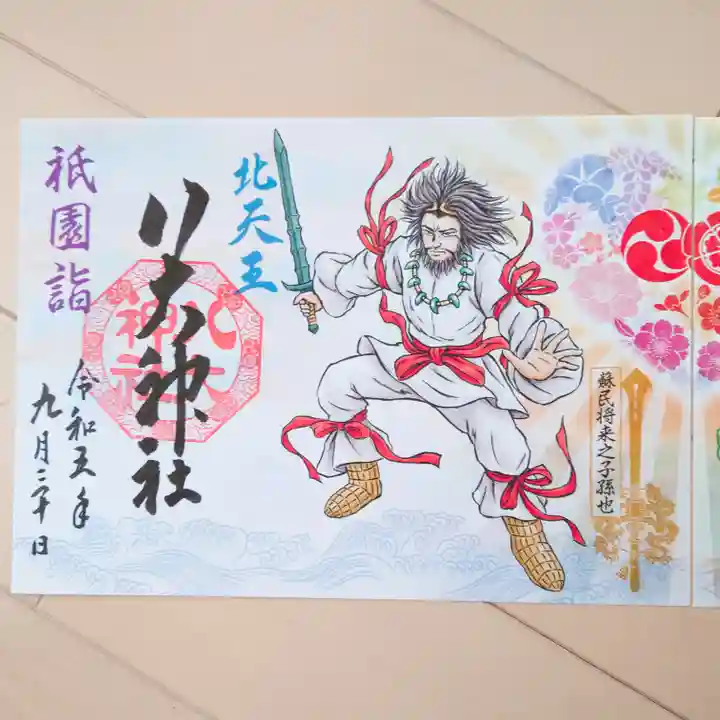 蘇民将来之子孫也
北天王
八大神社
八大
神社
祇園詣
令和五年
九月二十日